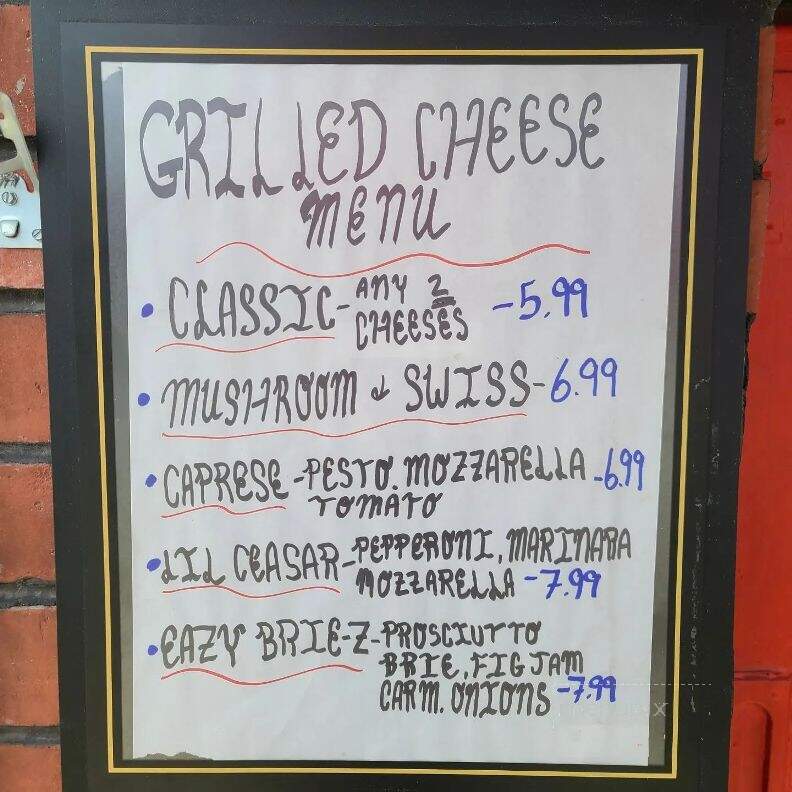 GRILLED CHEESE
MENU
• CLASSIC - ANY 2 CHEESES - 5.99
• MUSHROOM & SWISS - 6.99
• CAPRESE - PESTO. MOZZARELLA - 6.99
TOMATO
• LIL CEASAR - PEPPERONI, MARINARA
MOZZARELLA - 7.99
• EAZY BRIE-Z - PROSCIUTTO
BRIE, FIG JAM
CARM. ONIONS - 7.99